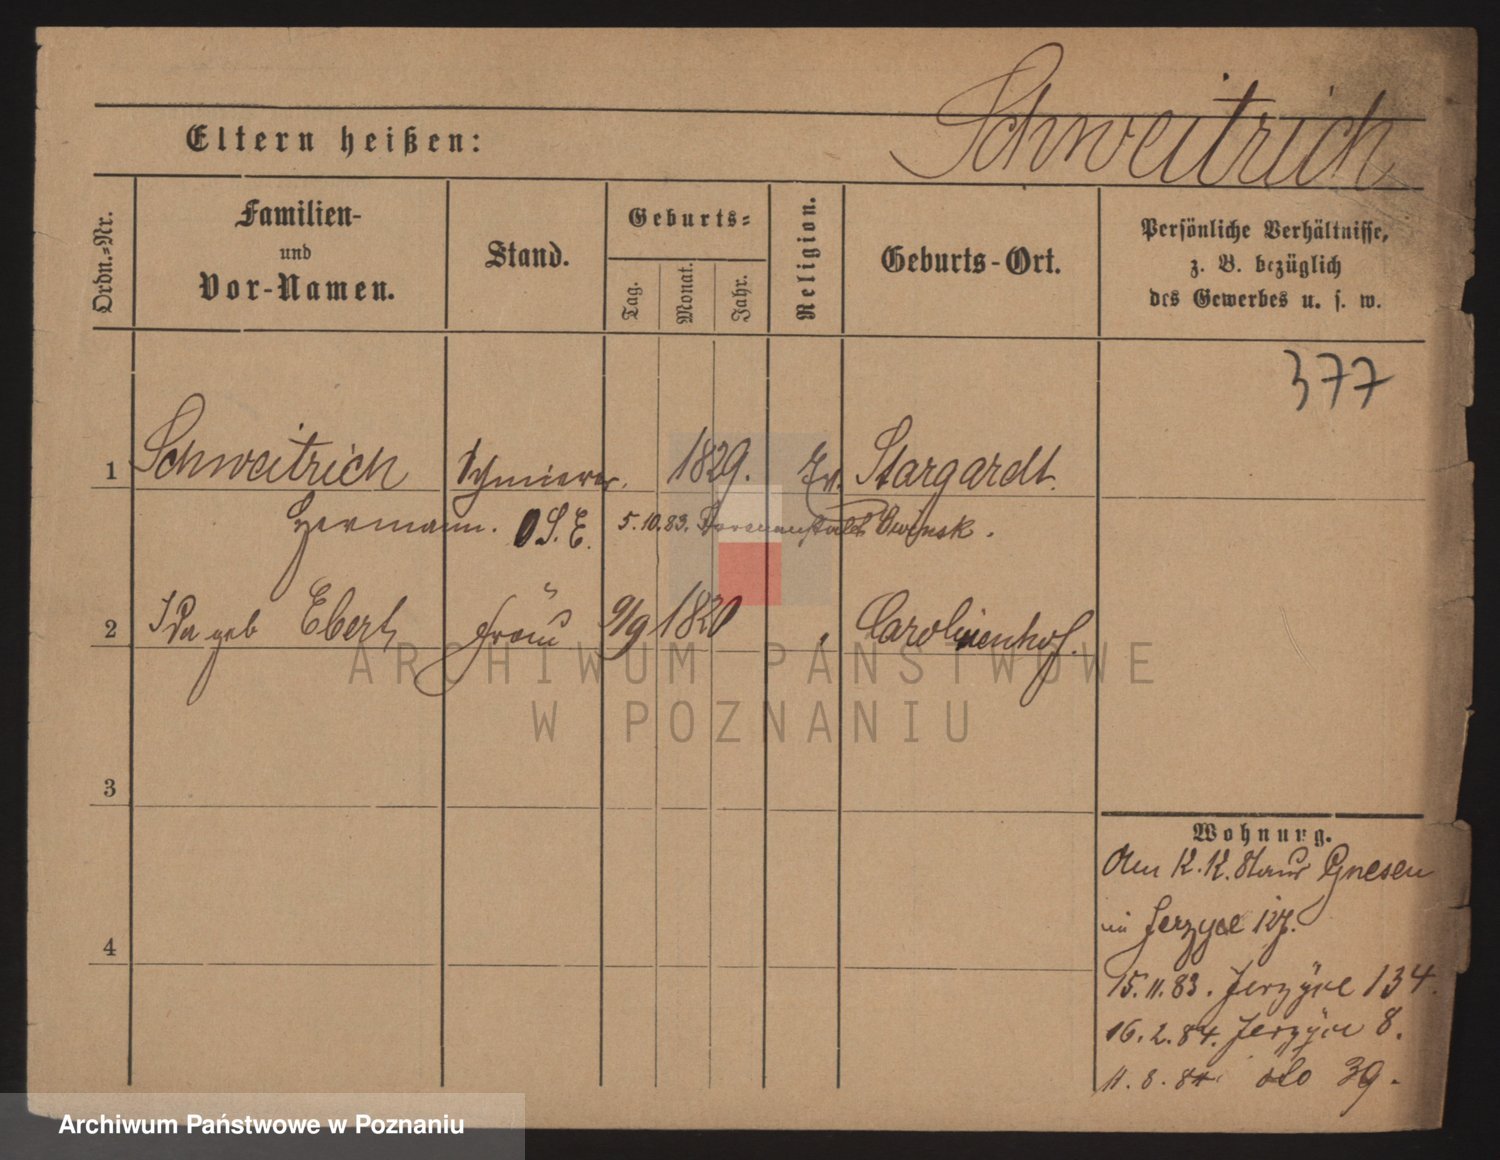 Schweitrich
Eltern heißen:
Ordn.-Nr.
Familien-
und
Vor-Namen.
Stand.
Geburts-
Tag.
Monat.
Jahr.
Religion.
Geburts-Ort.
Persönliche Verhältnisse,
z. B. bezüglich
des Gewerbes u. s. w.
377
1 Schweitrich Schmierer. 1829. Ev. Stargardt.
Hermann. O.S.E. 5.10.83. Owinsk.
2 Ida geb Ebert Frau 9/9 1820 " Carolinenhof.
3
4
Wohnung.
Gnesen
in Jerzyce 127.
15.11.83. Jerzyce 134.
16.2.84. Jerzyce 8.
11.8.84 dto 39.
ARCHIWUM PAŃSTWOWE
W POZNANIU
Archiwum Państwowe w Poznaniu